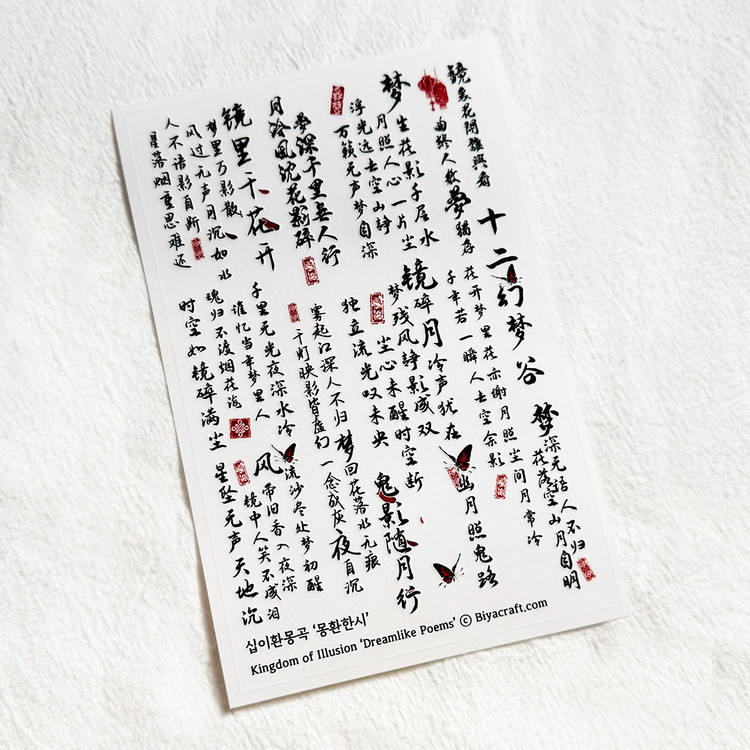 镜象花開誰與看
曲終人散夢猶存
十二幻梦谷
梦生花影千层水
月照人心一片尘
浮光远去空山静
万籁无声梦自深
月冷風沉花影碎
夢深千里無人行
镜里千花开
梦里万影散
风过无声月沉如水
人不语影自断
星落烟重思难还
花开梦里花亦谢月照尘间月常冷
千年若一瞬人去空余影
镜碎月冷声犹在
梦残风静影成双
尘心未醒时空断
独立流光叹未央
雾起江深人不归
千灯映影皆虚幻
千里无光夜深水冷
谁忆当年梦里人
魂归不渡烟花海
时空如镜碎满尘
梦深无话人不归
花落空山月自明
幽月照鬼路
鬼影随月行
梦回花落水无痕
一念成灰夜自沉
流沙尽处梦初醒
风带旧香入夜深
镜中人笑不成泪
星坠无声天地沉
십이환몽곡 ‘몽환한시’
Kingdom of Illusion ‘Dreamlike Poems’ © Biyacraft.com